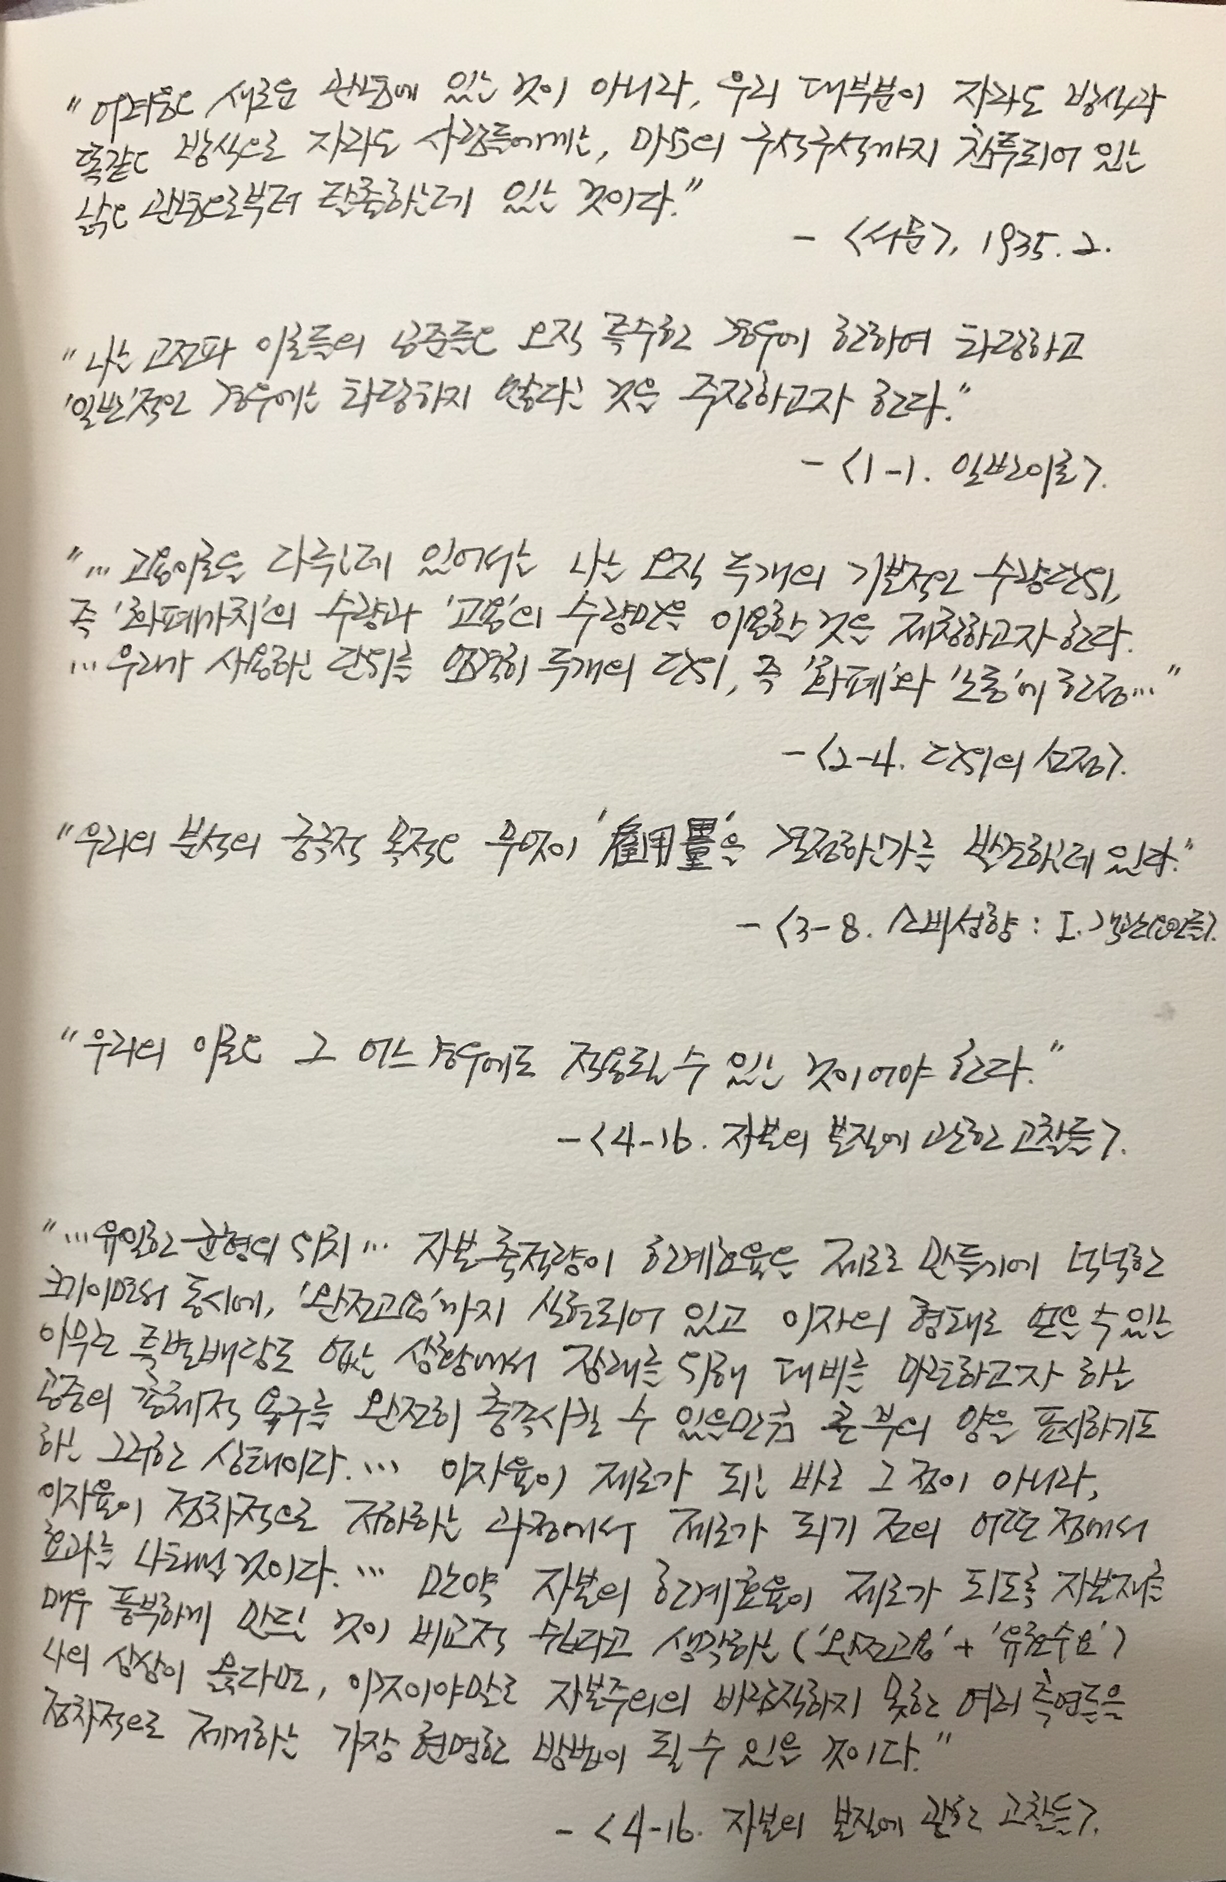 "어려움은 새로운 관념에 있는 것이 아니라, 우리 대부분이 자라온 방식과
똑같은 방식으로 자라온 사람들에게는, 마음의 구석구석까지 침투되어 있는
낡은 관념으로부터 탈출하는데 있는 것이다."
- <서문>, 1935. 2.
"나는 고전파 이론들의 공준들은 오직 특수한 경우에 한하여 타당하고
'일반'적인 경우에는 타당하지 않다는 것을 주장하고자 한다."
- <1-1. 일반이론>.
"... 고용이론을 다루는데 있어서는 나는 오직 두개의 기본적인 수량단위,
즉 '화폐가치'의 수량과 '고용'의 수량만을 이용할 것을 제창하고자 한다.
... 우리가 사용하는 단위를 엄격히 두개의 단위, 즉 '화폐'와 '노동'에 한정..."
- <2-4. 단위의 선정>.
"우리의 분석의 궁극적 목적은 무엇이 '雇用量'을 결정하는가를 발견하는데 있다."
- <3-8. 소비성향 : I. 객관적요인들>.
"우리의 이론은 그 어느 경우에도 적용될 수 있는 것이어야 한다."
- <4-16. 자본의 본질에 관한 고찰들>.
"... 유일한 균형의 위치 ... 자본축적량이 한계효율을 제로로 만들기에 넉넉한
크기이면서 동시에, '완전고용'까지 실현되어 있고 이자의 형태로 얻을 수 있는
아무런 특별배당도 없는 상황에서 장래를 위해 대비를 마련하고자 하는
공중의 총체적 욕구를 완전히 충족시킬 수 있을만큼 큰 부의 양을 표시하기도
하는 그러한 상태이다. ... 이자율이 제로가 되는 바로 그 점이 아니라,
이자율이 점차적으로 저하하는 과정에서 제로가 되기 전의 어떤 점에서
효과를 나타낼 것이다. ... 만약 자본의 한계효율이 제로가 되도록 자본재를
매우 풍부하게 만드는 것이 비교적 쉽다고 생각하는 ('완전고용' + '유효수요')
나의 상상이 옳다면, 이것이야말로 자본주의의 바람직하지 못한 여러 측면들을
점차적으로 제거하는 가장 현명한 방법이 될 수 있을 것이다."
- <4-16. 자본의 본질에 관한 고찰들>.